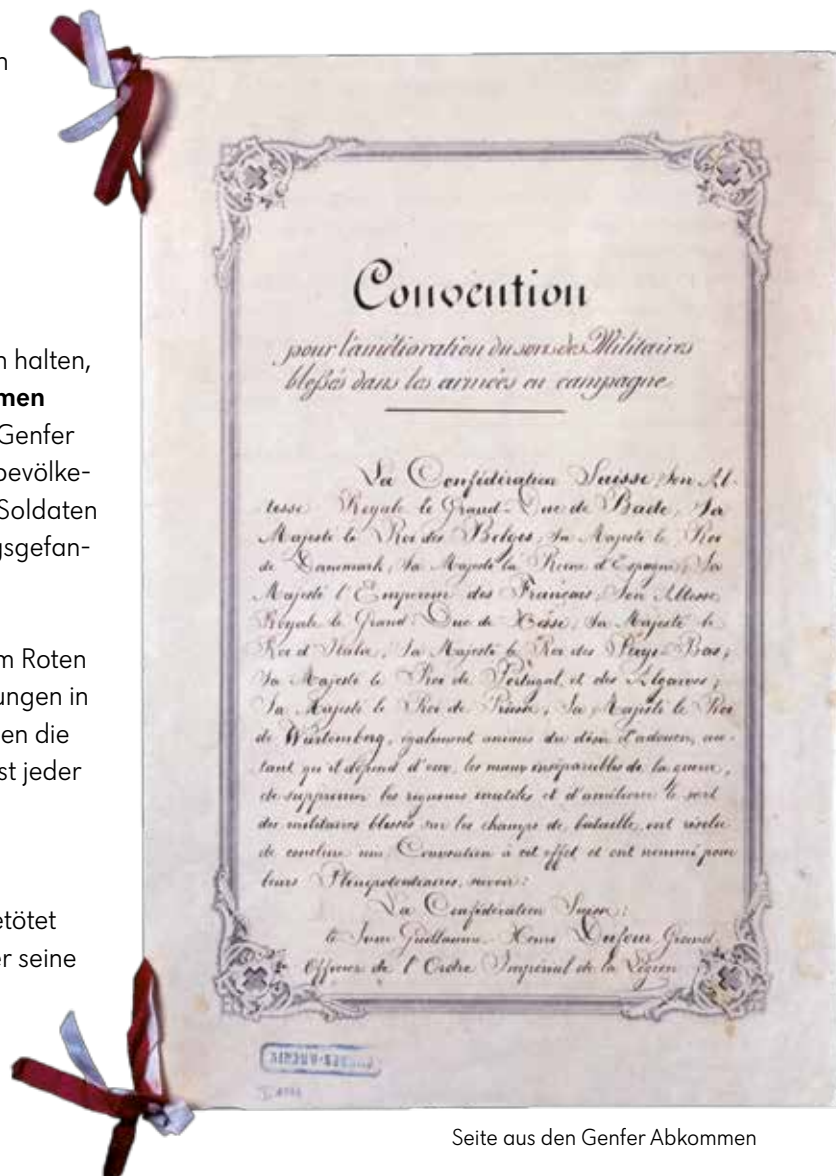 n
n halten,
men
Genfer
bevölke-
Soldaten
gsgefan-
m Roten
ungen in
en die
st jeder
etötet
er seine
Convention
pour l'amélioration du sort des Militaires
blessés dans les armées en campagne
La Confédération Suisse, Son Al-
tesse Royale le Grand-Duc de Bade, Sa
Majesté le Roi des Belges, Sa Majesté le Roi
de Danemark, Sa Majesté la Reine d'Espagne, Sa
Majesté l'Empereur des Français, Son Altesse
Royale le Grand Duc de Hesse, Sa Majesté le
Roi d'Italie, Sa Majesté le Roi des Pays-Bas,
Sa Majesté le Roi de Portugal et des Algarves,
Sa Majesté le Roi de Prusse, Sa Majesté le Roi
de Wurtemberg, également animés du désir d'adoucir, au-
tant qu'il dépend d'eux, les maux inséparables de la guerre,
de supprimer les rigueurs inutiles et d'améliorer le sort
des militaires blessés sur les champs de bataille, ont résolu
de conclure une Convention à cet effet et ont nommé pour
leurs Plénipotentiaires, savoir:
La Confédération Suisse:
le Sieur Guillaume-Henri Dufour, Grand
Officier de l'Ordre Impérial de la Légion
Seite aus den Genfer Abkommen